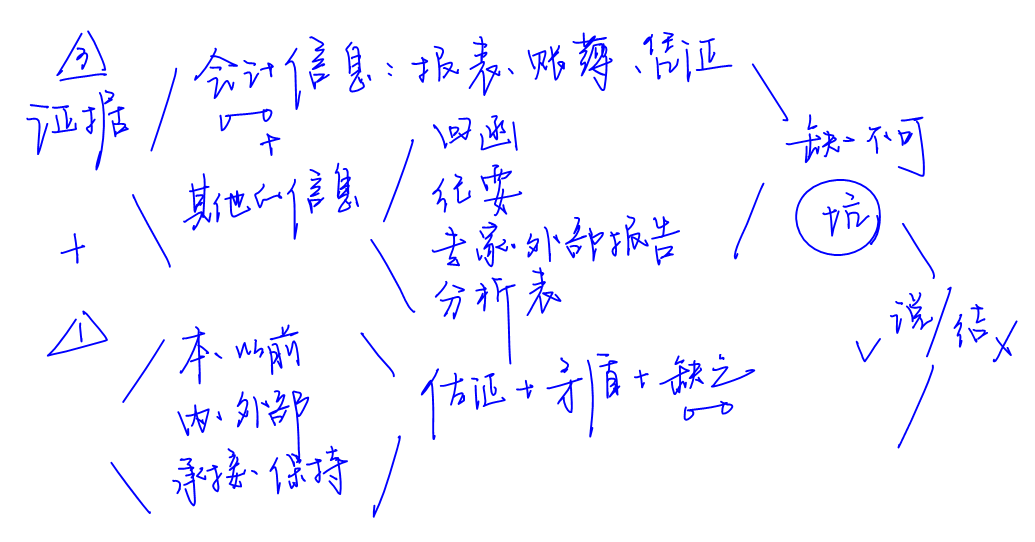 ③
证据
会计信息：报表、账薄、凭证
+
其他的信息
回函
纪要
专家、外部报告
分析表
缺一不可
坑
说/结
+
①
本、以前
内、外部
承接、保持
佐证+矛盾+缺乏